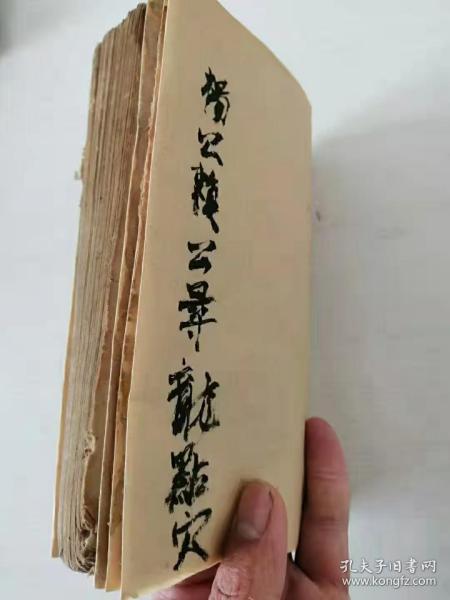 楊公賴公尋龍點穴
孔夫子旧书网
www.kongfz.com